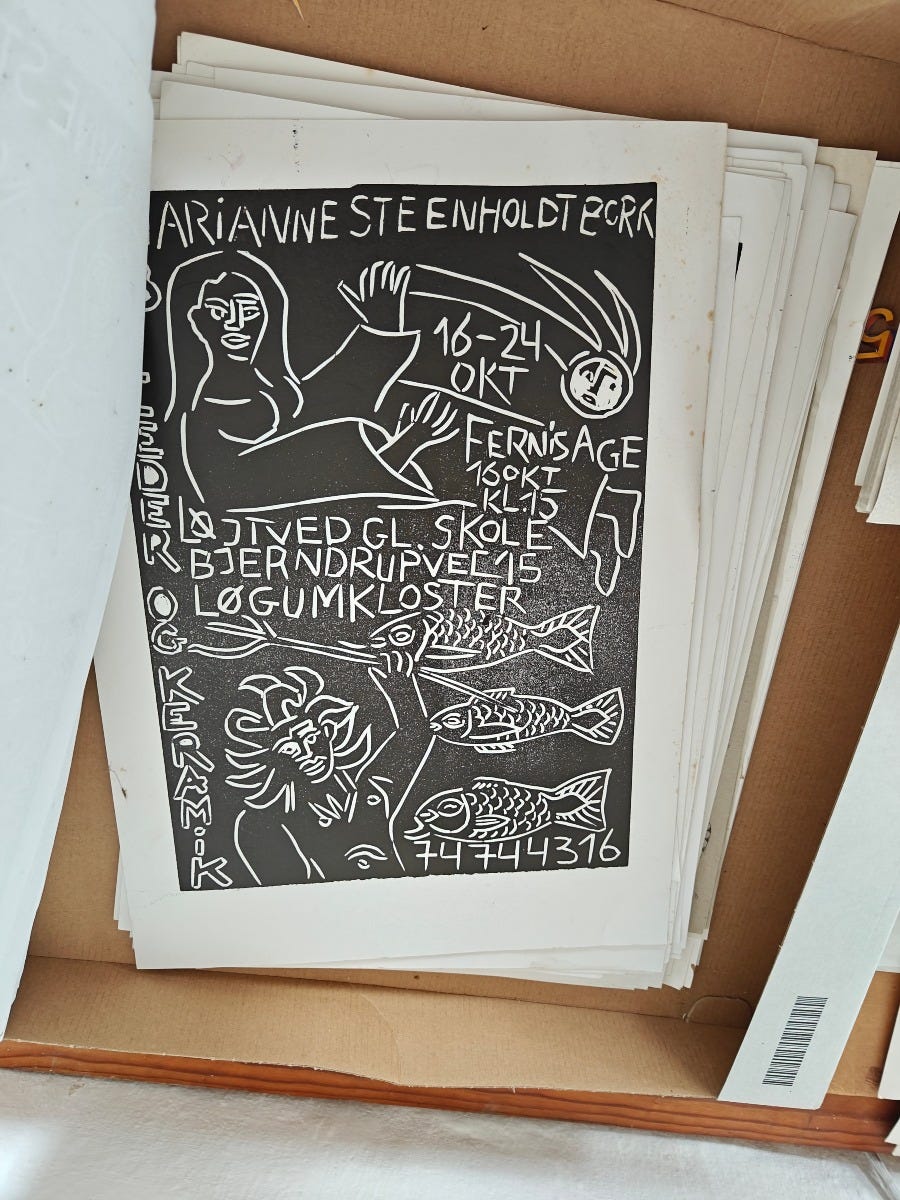 ARiANNE STEENHOLDT BORK
16-24
OKT
FERNiSAGE
16 OKT
KL.15
LØJTVED GL. SKOLE
BJERNDRUPVEJ 15
LØGUMKLOSTER
74 74 43 16
OG KERAMiK